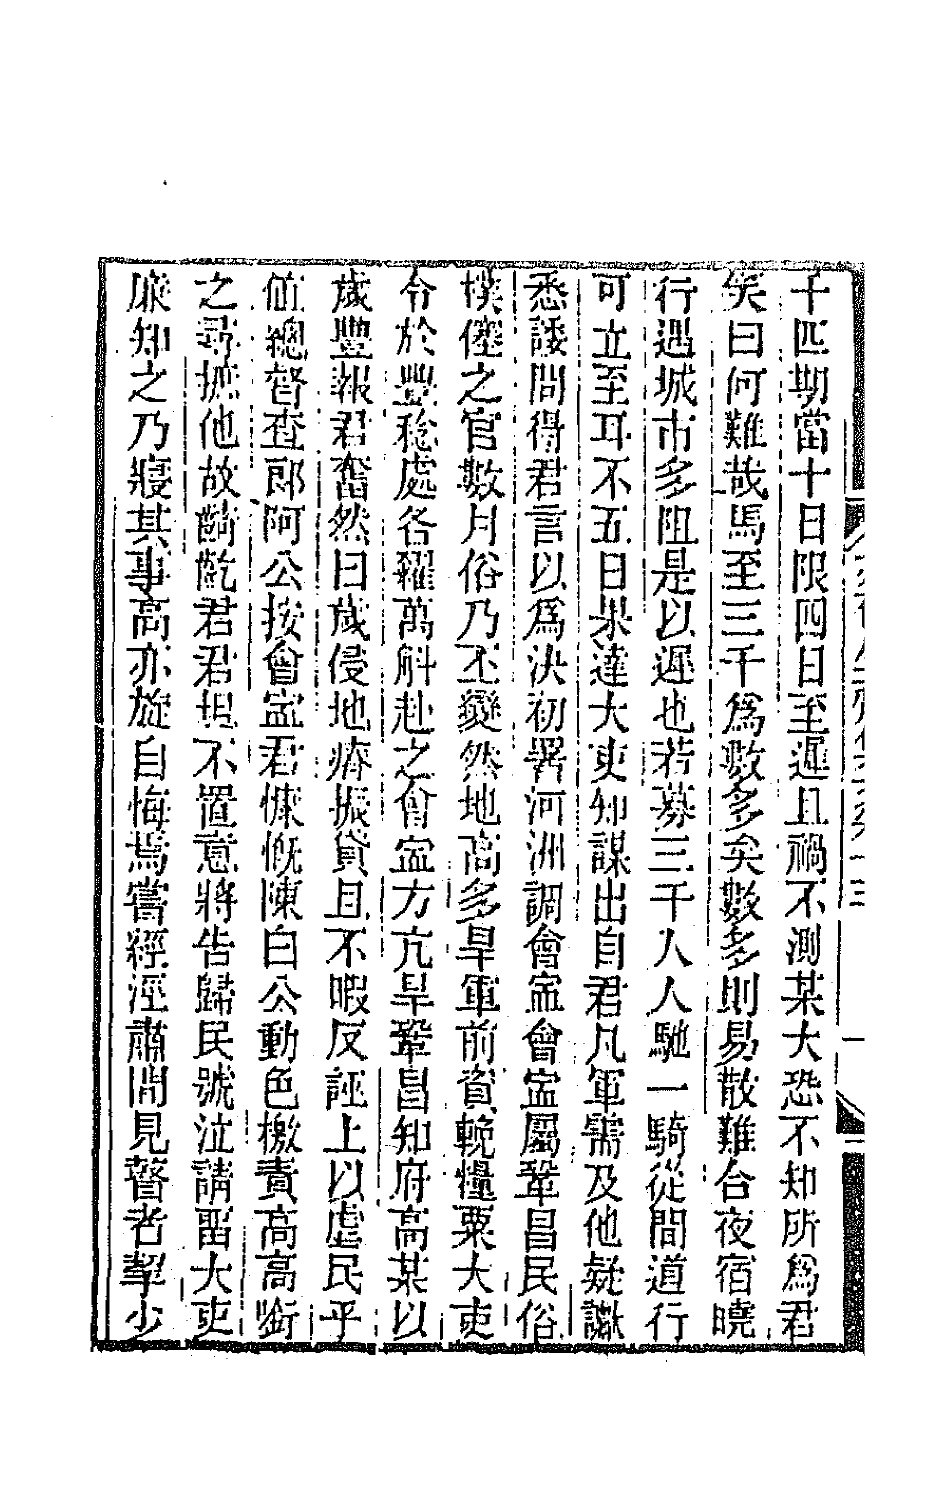 千匹期當十日限四日至遲且禍不測某大恐不知所爲君
矣曰何難哉馬至三千爲數多矣數多則易散難合夜宿曉
行遇城市多阻是以遲也若募三千人人馳一騎從間道行
可立至耳不五日果達大吏知謀出自君凡軍需及他疑讞
悉諉問得君言以爲決初署河洲調會寍會寍屬鞏昌民俗
樸僿之官數月俗乃丕變然地高多旱軍前資輓糧粟大吏
令於豐稔處各糴萬斛赴之會寍方亢旱鞏昌知府高某以
歲豐報君奮然曰歲侵地瘠振貸且不暇反誣上以虐民乎
値總督查郎阿公按會寍君慷慨陳白公動色檄責高高銜
之尋摭他故齮齕君君坦不置意將告歸民號泣請畱大吏
廉知之乃寢其事高亦旋自悔焉嘗經涇肅間見瞽者挈少